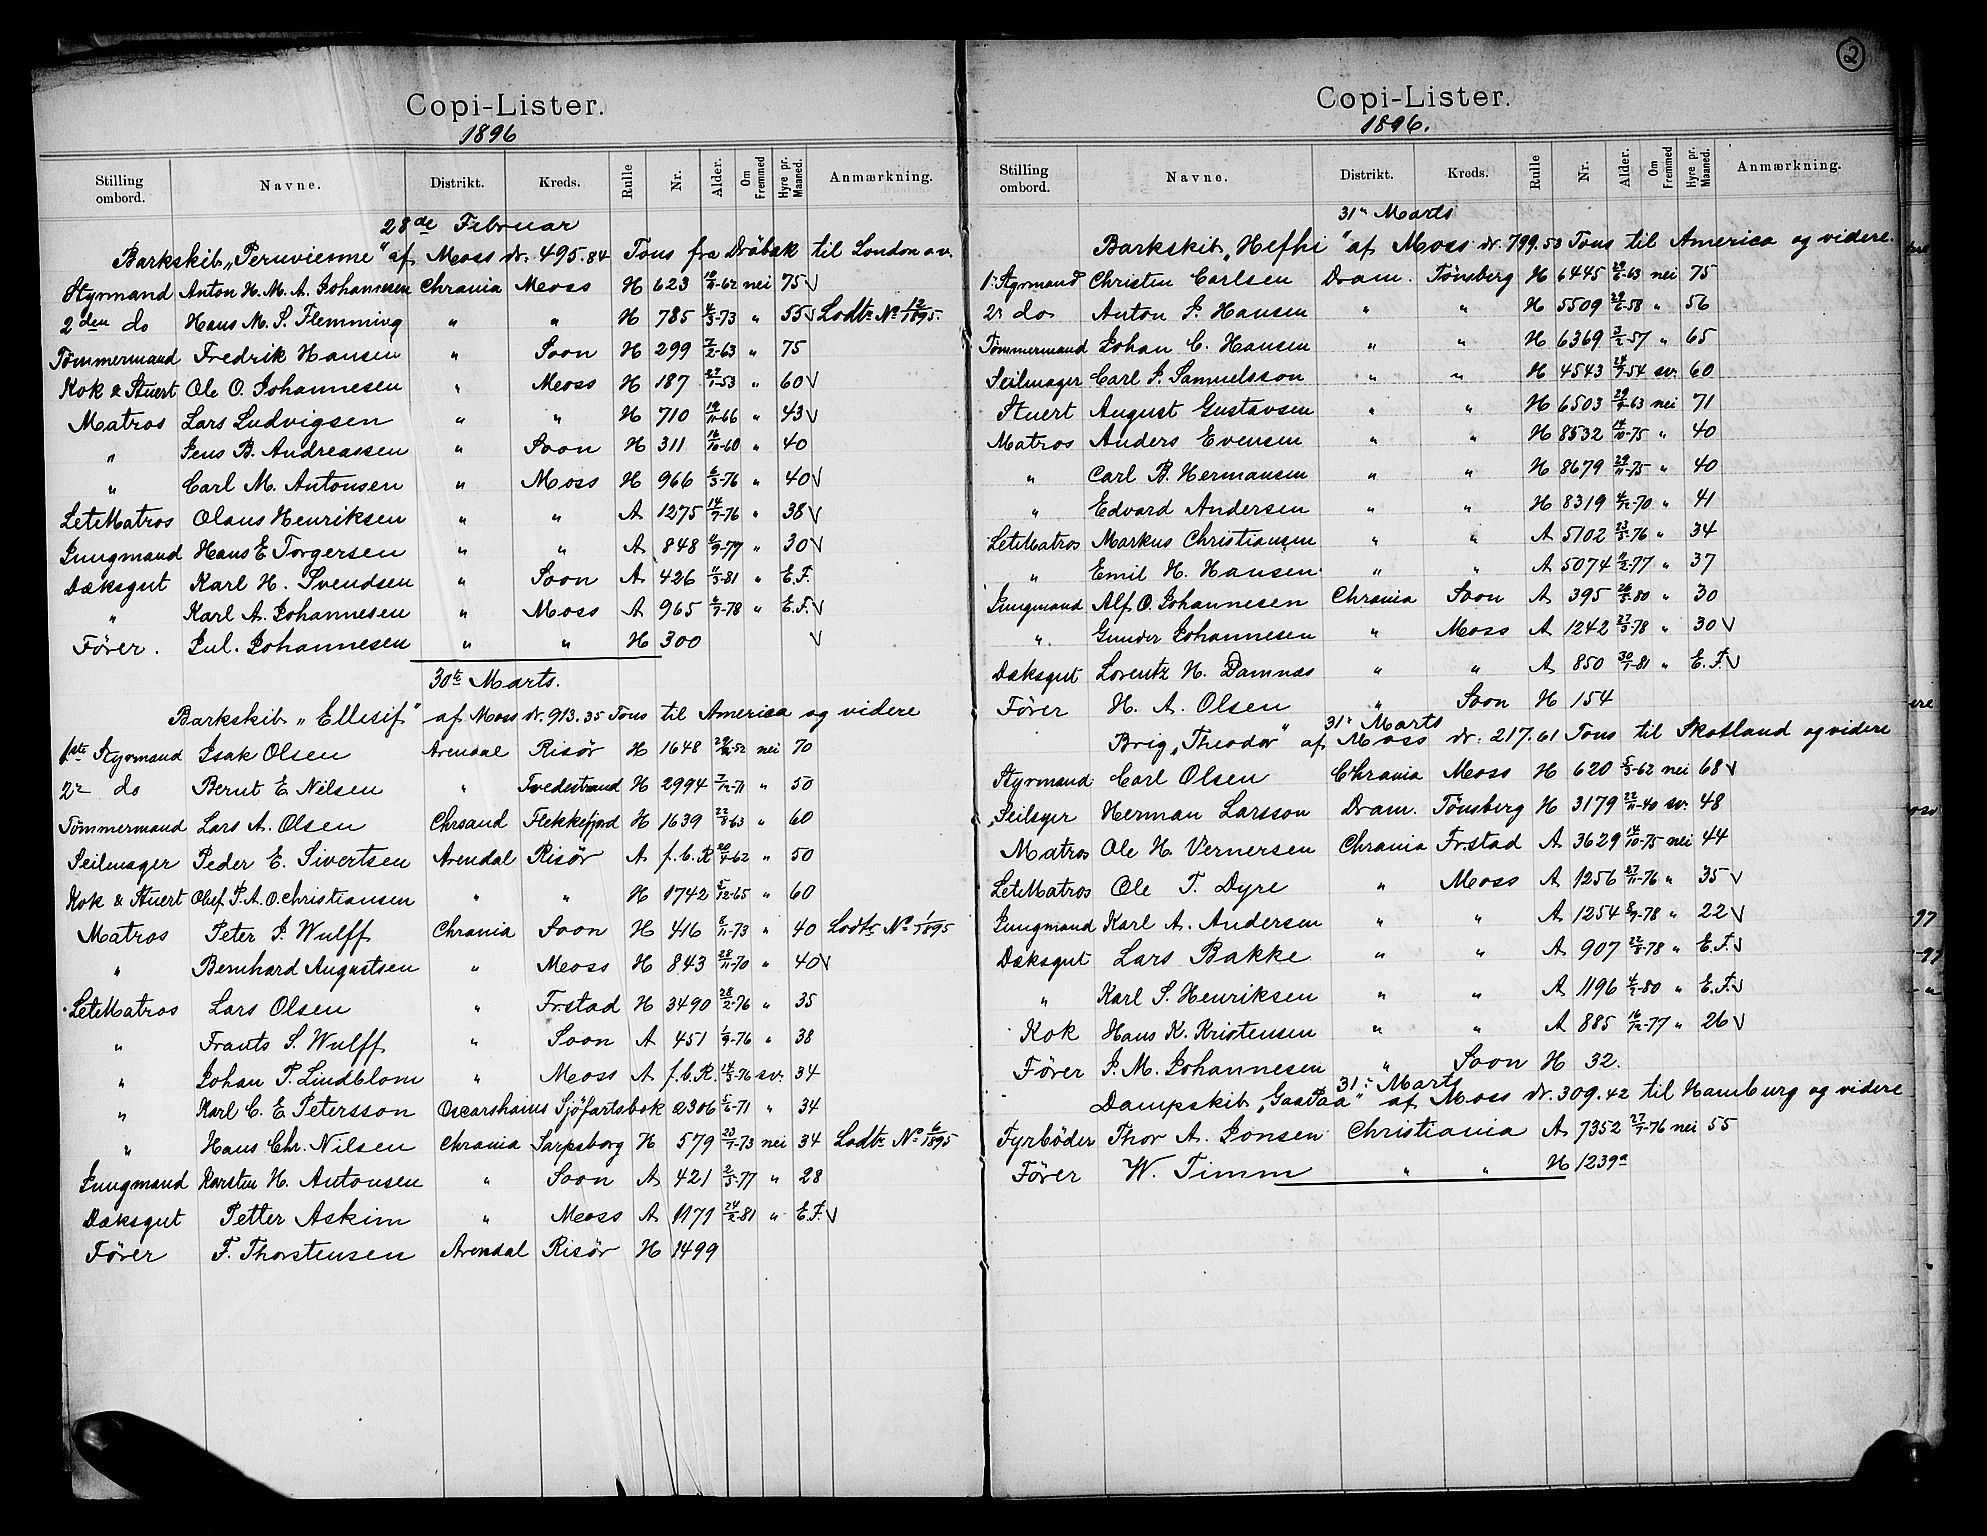 Copi-Lister.
1896
Stilling ombord. Navne. Distrikt. Kreds. Rulle Nr. Alder. Om Fremmed Hyre pr. Maaned. Anmærkning.
28de Februar
Barkskib „Peruvienne" af Moss dr. 495.84 Tons fra Dröbak til London o.v.
Styrmand Anton H. M. A. Johannesen Chrania Moss H 623 -62 nei 75 √
2den do Hans M. S. Flemming " " H 785 4/3-73 " 55 √ Lodts No 12/1895.
Tømmermand Fredrik Hansen " Soon H 299 7/2-63 " 75
Kok & Stuert Ole O. Johannesen " Moss H 187 27/1-53 " 60 √
Matros Lars Ludvigsen " " H 710 19/11-66 " 43 √
" Jens B. Andreassen " Soon H 311 16/10-60 " 40
" Carl M. Antonsen " Moss H 966 6/3-76 " 40 √
LetMatros Olaus Henriksen " " A 1275 14/7-76 " 38 √
Jungmand Hans E Torgersen " " A 848 -77 " 30 √
Dæksgut Karl H. Svendsen " Soon A 426 11/3-81 " E.F.
" Karl A. Johannesen " Moss A 965 6/7-78 " E.F. √
Förer. Jul. Johannesen " " H 300 √
30te Marts.
Barkskib „Ellesif" af Moss dr. 913.35 Tons til America og videre
1ste Styrmand Isak Olsen Arendal Risör H 1648 -52 nei 70
2- do Bernt E. Nilsen " Tvedestrand H 2994 7/12-71 " 50
Tömmermand Lars A. Olsen Chrsand Flekkefjord H 1639 22/8-63 " 60
Seilmager Peder E. Sivertsen Arendal Risör A f.b.R 20/4-62 " 50
Kok & Stuert Oluf P. A. O. Christiansen " " H 1742 5/12-65 " 60
Matros Peter J. Wulff Chrania Soon H 416 8/11-73 " 40 Lodts No 1/1895
" Bernhard Augustsen " Moss H 843 28/11-70 " 40 √
LetMatros Lars Olsen " Frstad H 3490 28/2-76 " 35
" Frants S. Wulff " Soon A 451 1/9-76 " 38
" Johan T. Lindblom " Moss A f.b.R. 14/3-76 sv. 34
" Karl C. E Petersson Oscarshamns Sjöfartsbok 2306 5/6-71 " 34
" Hans Chr. Nilsen Chrania Sarpsborg H 579 23/7-73 nei 34 Lodts No 6/1895
Jungmand Karsten H. Antonsen " Soon A 421 2/5-77 " 28
Dæksgut Petter Askim " Moss A 1171 24/2-81 " E.F. √
Förer T. Thorstensen Arendal Risör H 1499
2
Copi-Lister.
1896.
Stilling ombord. Navne. Distrikt. Kreds. Rulle Nr. Alder. Om Fremmed Hyre pr. Maaned. Anmærkning.
31" Marts
Barkskib „Hefhi" af Moss dr. 799.53 Tons til America og videre.
1: Styrmand Christen Carlsen Dram. Tønsberg H 6445 29/6-63 nei 75
2: do Anton J. Hansen " " H 5509 29/6-58 " 56
Tömmermand Johan C. Hansen " " H 6369 3/2-57 " 65
Seilmager Carl J. Samuelsson " " H 4543 24/7-54 sv. 60
Stuert August Gustavsen " " H 6503 -63 nei 71
Matros Anders Evensen " " H 8532 14/10-75 " 40
" Carl B. Hermansen " " H 8679 29/11-75 " 40
" Edvard Andersen " " H 8319 4/12-70 " 41
LetMatros Markus Christiansen " " A 5102 23/3-76 " 34
" Emil H. Hansen " " A 5074 -77 " 37
Jungmand Alf O. Johannesen Chrania Soon A 395 26/5-80 " 30
" Gunder Johannesen " Moss A 1242 27/3-78 " 30 √
Dæksgut Lorentz H. Damnæs " " A 850 30/1-81 " E.F. √
Förer H. A. Olsen " Soon H 154
31" Marts
Brig „Theodor" af Moss dr. 217.61 Tons til Skotland og videre
Styrmand Carl Olsen Chrania Moss H 620 5/3-62 nei 68 √
Herman Larsson Dram. Tønsberg H 3179 22/11-40 sv. 48
Matros Ole H. Vernersen Chrania Frstad A 3629 14/10-75 nei 44
LetMatros Ole T. Dyre " Moss A 1256 27/11-76 " 35 √
Jungmand Karl A. Andersen " " A 1254 8/9-78 " 22 √
Dæksgut Lars Bakke " " A 907 22/8-78 " E.F. √
" Karl S. Henriksen " " A 1196 4/2-80 " E.F. √
Kok Hans K. Kristensen " " A 885 16/12-77 " 26 √
Förer J. M. Johannesen " Soon H 32.
31": Marts
Dampskib „Gaapaa" af Moss dr. 309.42 til Hamburg og videre
Fyrböder Thor A. Jonsen Christiania A 7352 27/7-76 nei 55
Förer W. Timm " " H 1239a